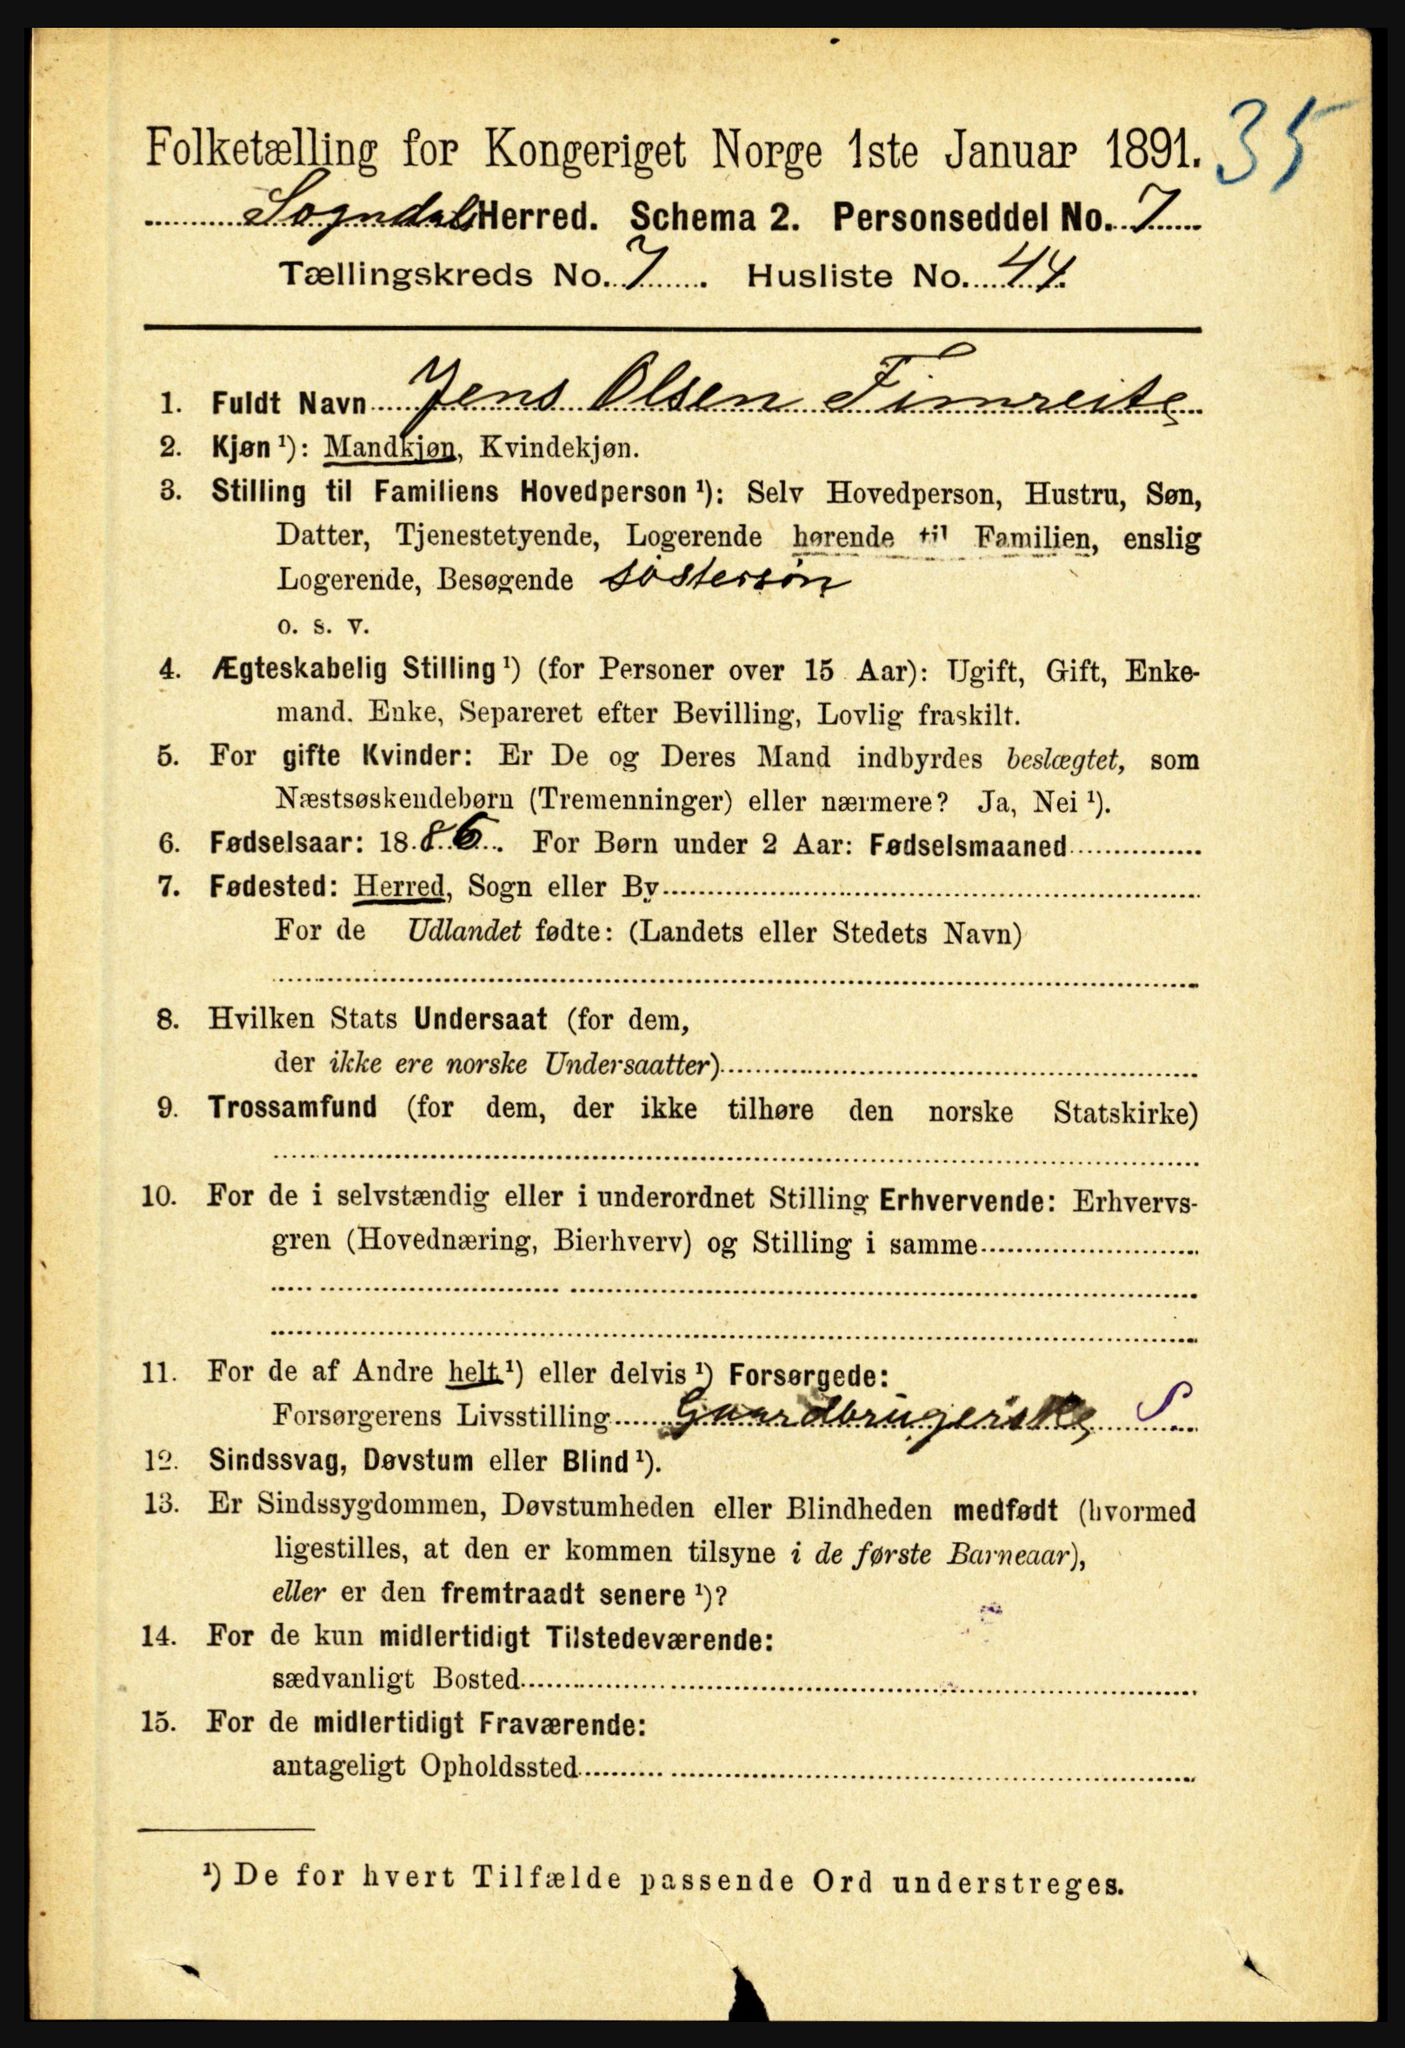 35
Folketælling for Kongeriget Norge 1ste Januar 1891.
Sogndal Herred. Schema 2. Personseddel No. 7
Tællingskreds No. 7. Husliste No. 44.
1. Fuldt Navn Jens Olsen Fimreite
2. Kjøn ¹): Mandkjøn, Kvindekjøn.
3. Stilling til Familiens Hovedperson ¹): Selv Hovedperson, Hustru, Søn,
Datter, Tjenestetyende, Logerende hørende til Familien, enslig
Logerende, Besøgende søstersøn
o. s. v.
4. Ægteskabelig Stilling ¹) (for Personer over 15 Aar): Ugift, Gift, Enke-
mand. Enke, Separeret efter Bevilling, Lovlig fraskilt.
5. For gifte Kvinder: Er De og Deres Mand indbyrdes beslægtet, som
Næstsøskendebørn (Tremenninger) eller nærmere? Ja, Nei ¹).
6. Fødselsaar: 1886. For Børn under 2 Aar: Fødselsmaaned
7. Fødested: Herred, Sogn eller By
For de Udlandet fødte: (Landets eller Stedets Navn)
8. Hvilken Stats Undersaat (for dem,
der ikke ere norske Undersaatter)
9. Trossamfund (for dem, der ikke tilhøre den norske Statskirke)
10. For de i selvstændig eller i underordnet Stilling Erhvervende: Erhvervs-
gren (Hovednæring, Bierhverv) og Stilling i samme
11. For de af Andre helt ¹) eller delvis ¹) Forsørgede:
Forsørgerens Livsstilling Gaardbrugerske S.
12. Sindssvag, Døvstum eller Blind ¹).
13. Er Sindssygdommen, Døvstumheden eller Blindheden medfødt (hvormed
ligestilles, at den er kommen tilsyne i de første Barneaar),
eller er den fremtraadt senere ¹)?
14. For de kun midlertidigt Tilstedeværende:
sædvanligt Bosted
15. For de midlertidigt Fraværende:
antageligt Opholdssted
¹) De for hvert Tilfælde passende Ord understreges.